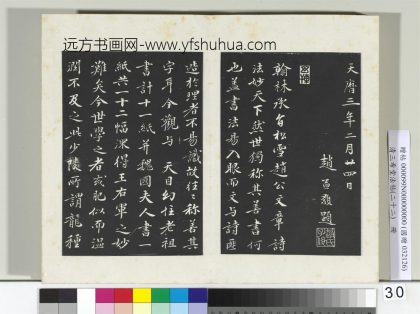 远方书画网-www.yfshuhua.com
天曆三年二月廿四日
趙孟頫題
翰林承旨松雪趙公文章詩
法妙天下然世獨称其善書何
也盖書法易入眼而文与詩匪
造於理者不易識故往〻称善其
字耳今觀与天目幻住老祖
書計十一紙并魏國夫人書一
紙共一十二幅深得王右軍之妙
難矣今世學之者或肥似而温
潤不及之此少陵所謂龍種
清三希堂法帖(二十二) 冊
30